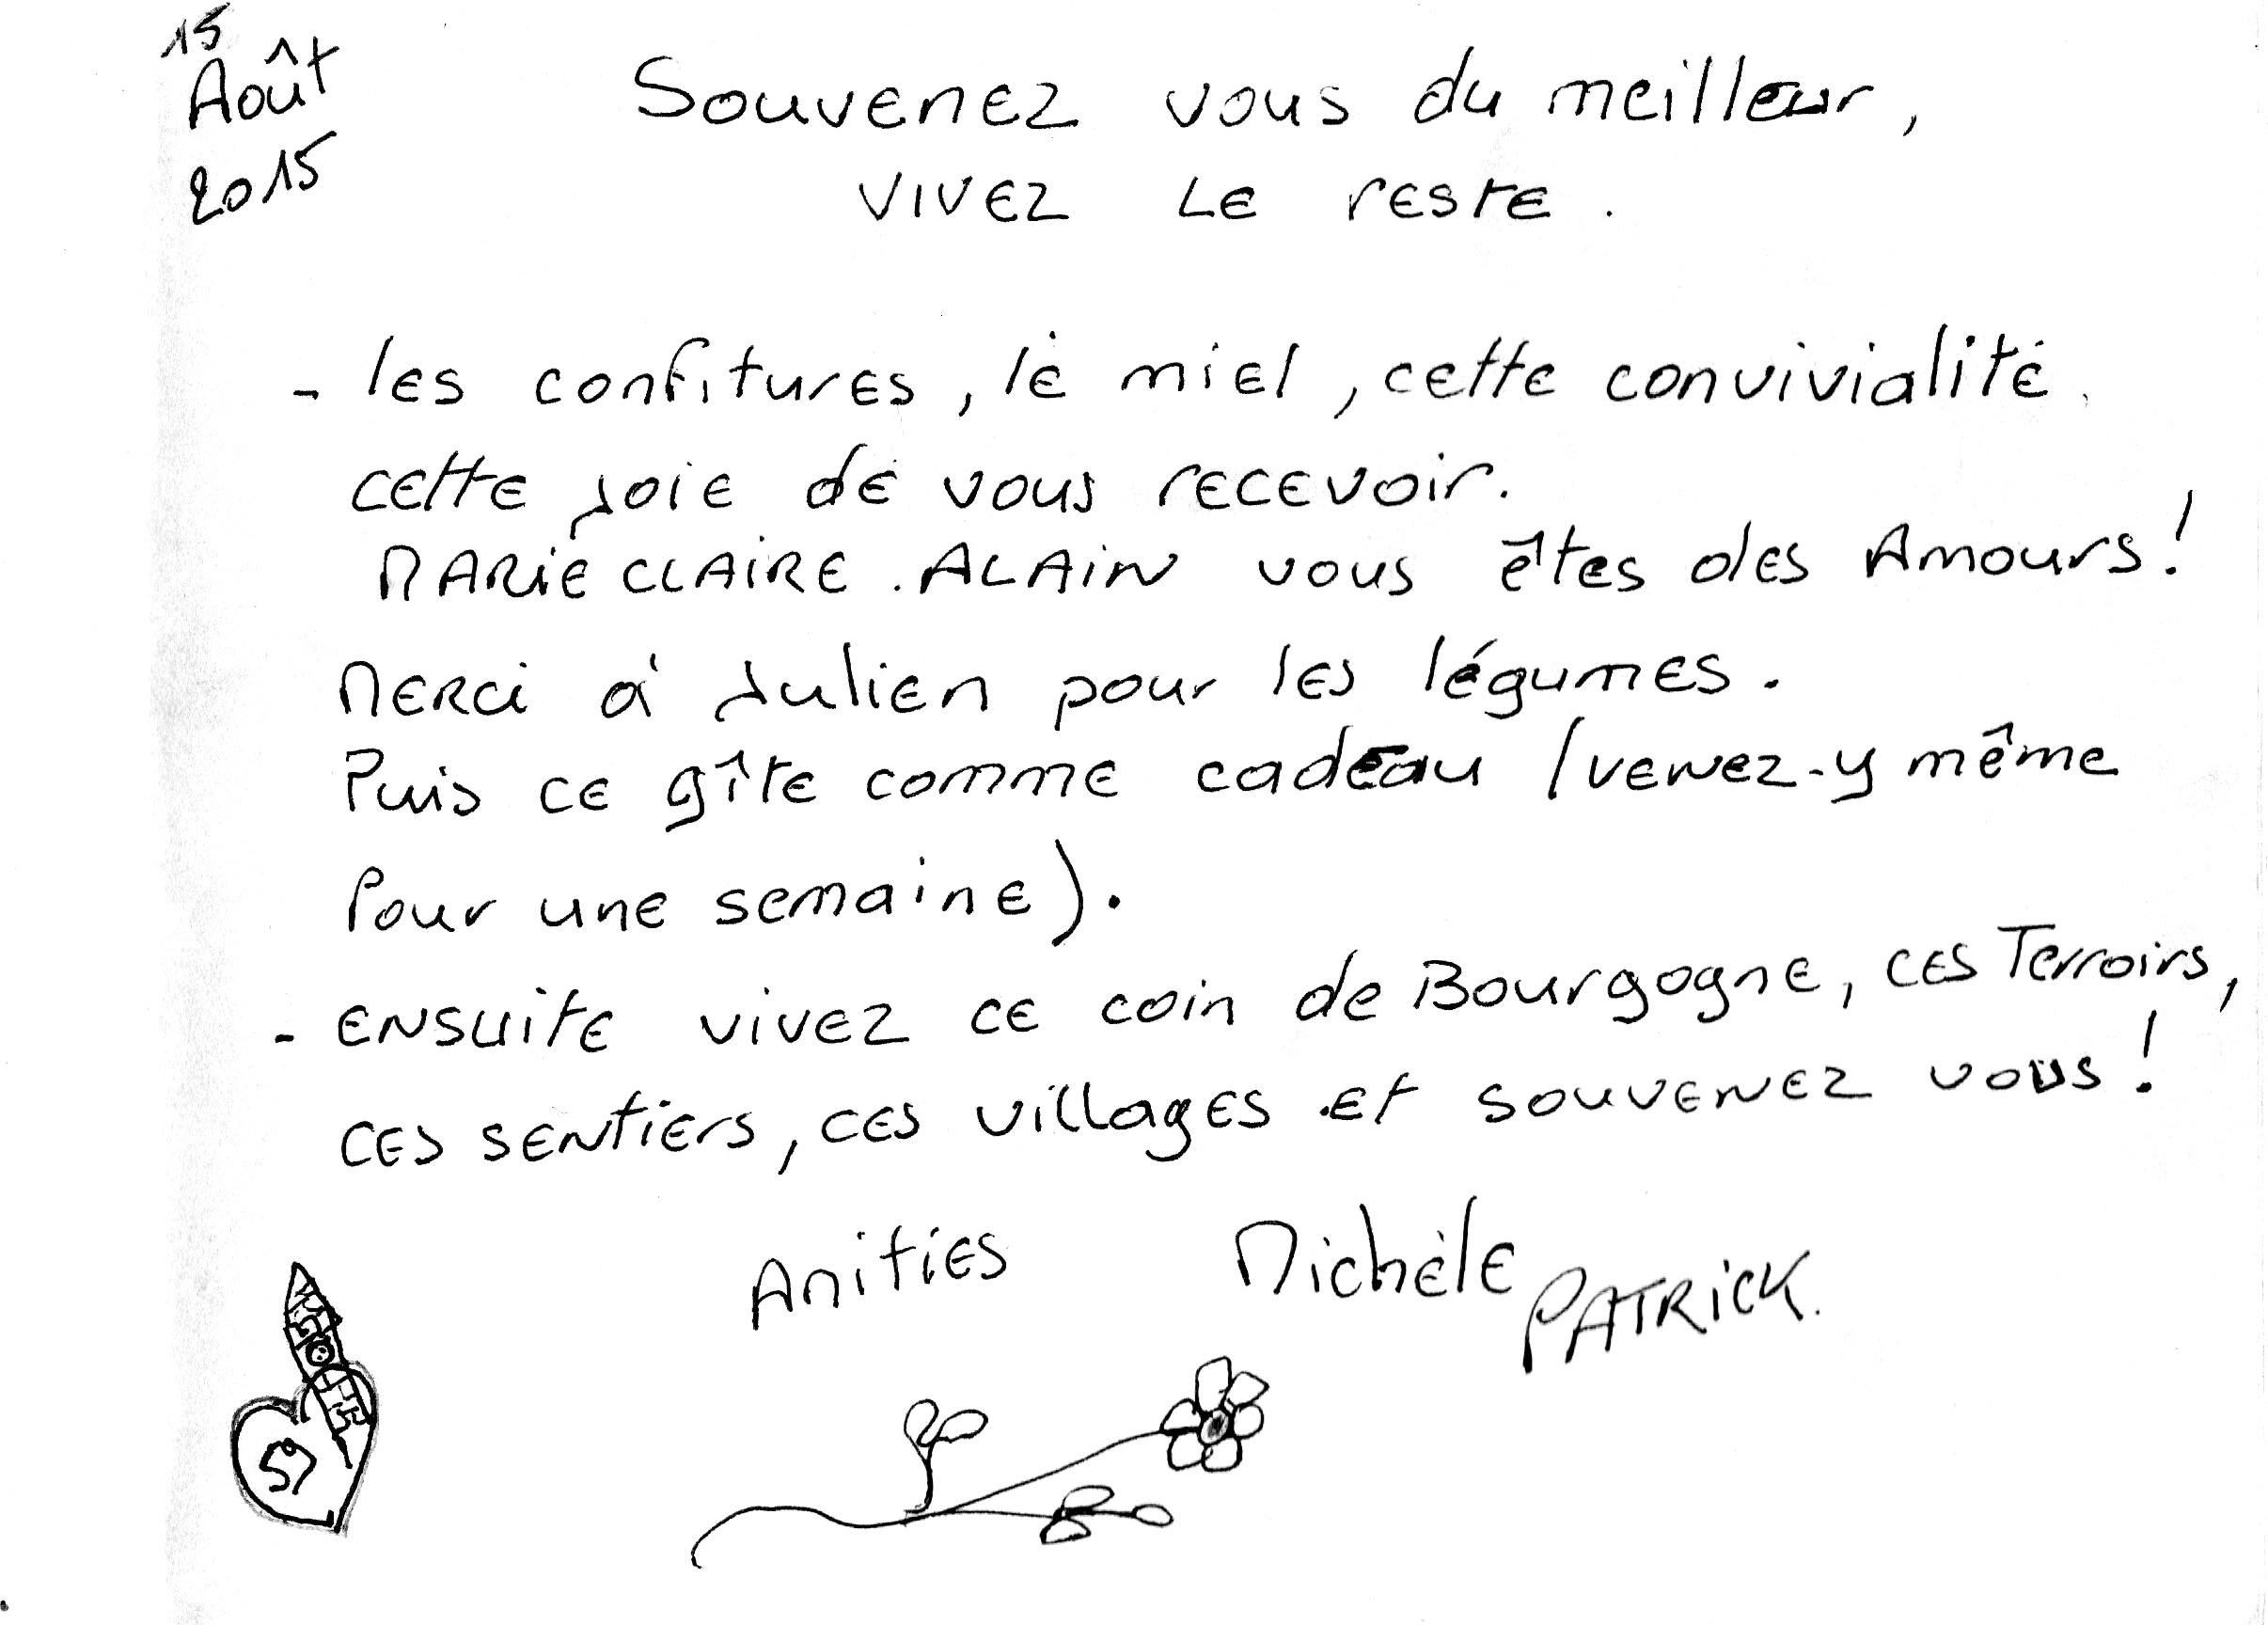 15
Août
2015
Souvenez vous du meilleur,
vivez le reste.
- les confitures, le miel, cette convivialité.
cette joie de vous recevoir.
MARIE CLAIRE. ALAIN vous êtes des Amours!
Merci à Julien pour les légumes.
Puis ce gîte comme cadeau (venez-y même
pour une semaine).
- ensuite vivez ce coin de Bourgogne, ces Terroirs,
ces sentiers, ces villages et souvenez vous!
Amities Michèle
PATRICK.